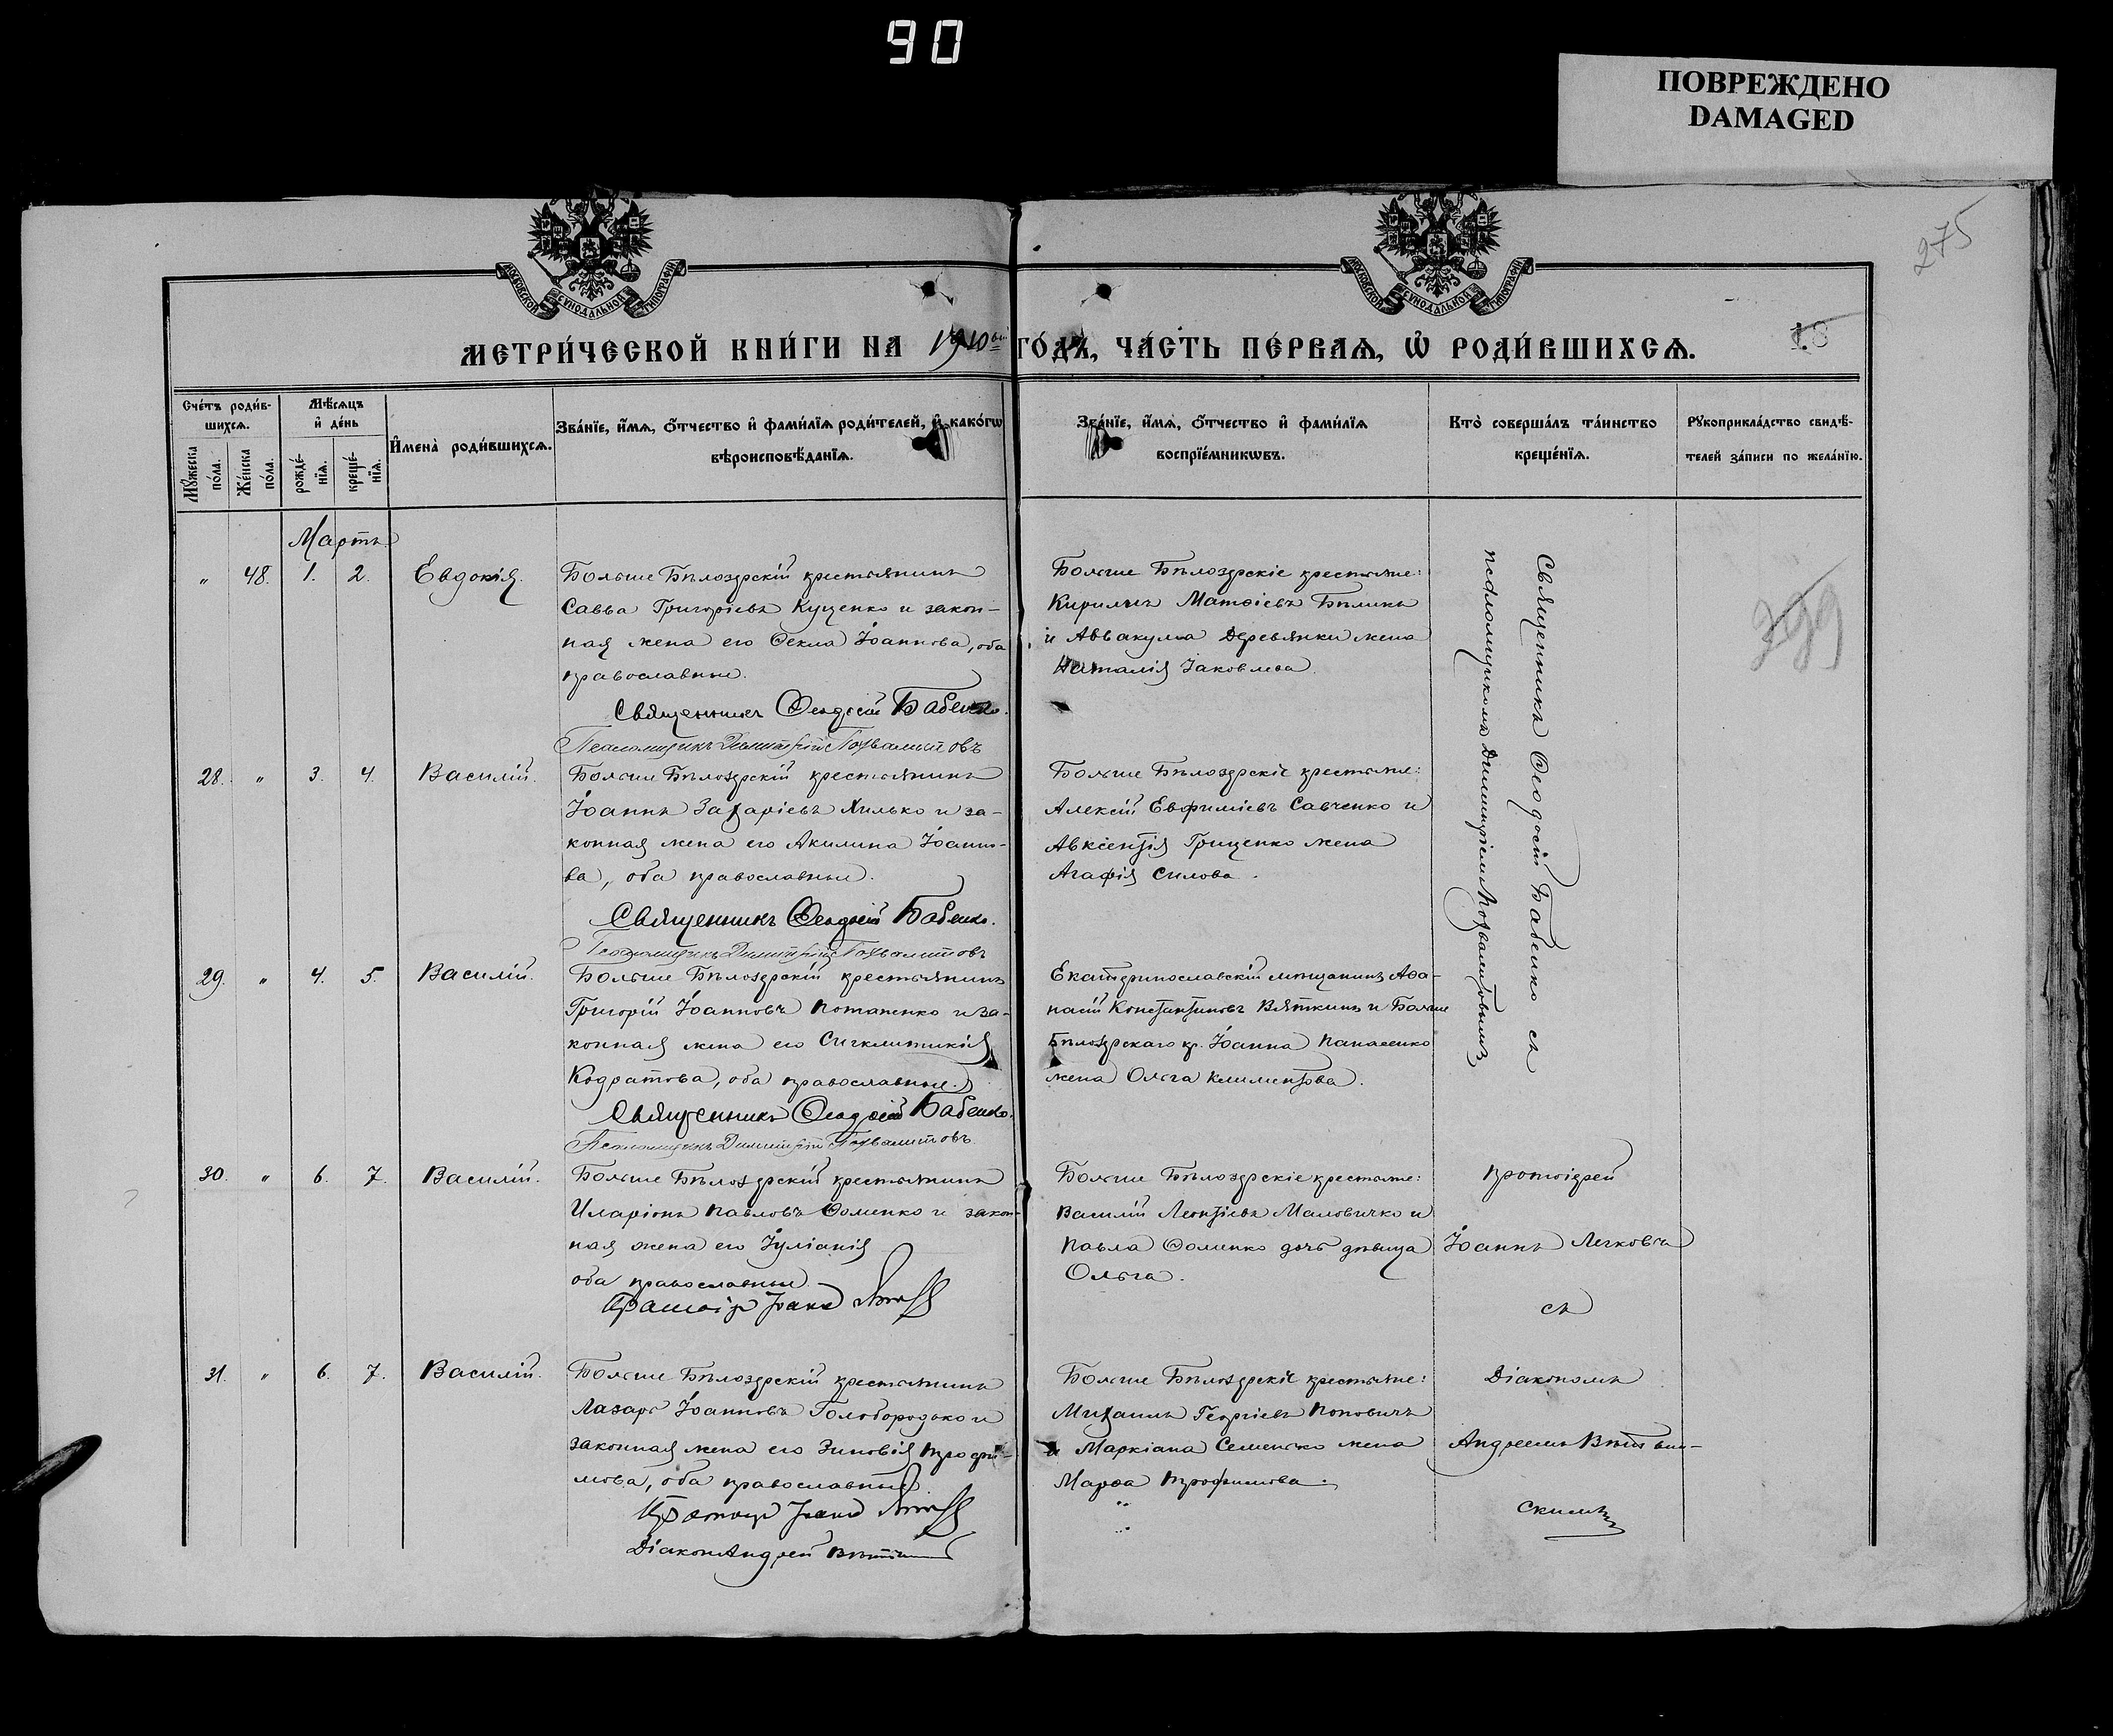 90
ПОВРЕЖДЕНО
DAMAGED
275
МОСКОВСКОЙ СѴНОДАЛЬНОЙ ТИПОГРАФІИ
МОСКОВСКОЙ СѴНОДАЛЬНОЙ ТИПОГРАФІИ
МЕТРИ́ЧЕСКОЙ КНИ́ГИ НА 1910ый ГО́ДЪ, ЧА́СТЬ ПЕ́РВАѦ, Ѡ҆ РОДИ́ВШИХСѦ.
Сче́тъ роди́в-
шихсѧ.
Мꙋ́жеска по́ла.
Же́нска по́ла.
Мѣ́сѧцъ
и҆ де́нь
рожде́-
нїѧ.
креще́-
нїѧ.
И҆мена̀ роди́вшихсѧ.
Зва́нїе, и҆́мѧ, ѻ҆́тчество и҆ фами́лїѧ роди́телей, и҆ како́гѡ
вѣроисповѣ́данїѧ.
Зва́нїе, и҆́мѧ, ѻ҆́тчество и҆ фами́лїѧ
воспрїе́мникѡвъ.
Кто̀ соверша́лъ та́инство
креще́нїѧ.
Рꙋкоприкла́дство свидѣ́-
телей за́писи по жела́нїю.
Мартъ
„ 48. 1. 2. Евдокія.
Больше Бѣлозерскій крестьянинъ
Савва Григоріевъ Куценко и закон-
ная жена его Ѳекла Іоаннова, оба
православные.
Священникъ Ѳеодосій Бабенко.
Псаломщикъ Димитрій Похвалитовъ
Больше Бѣлозерскіе крестьяне:
Кириллъ Матѳіевъ Бѣликъ
и Аввакума Деревянки жена
Наталія Іаковлева.
Священникъ Ѳеодосій Бабенко съ
псаломщикомъ Димитріемъ Похвалитовымъ
399
28. „ 3. 4. Василій.
Больше Бѣлозерскій крестьянинъ
Іоаннъ Захаріевъ Хилько и за-
конная жена его Акилина Іоанно-
ва, оба православные.
Священникъ Ѳеодосій Бабенко.
Псаломщикъ Димитрій Похвалитовъ
Больше Бѣлозерскіе крестьяне:
Алексій Евфиміевъ Савченко и
Авксентія Гриценко жена
Агафія Силова.
29. „ 4. 5. Василій.
Больше Бѣлозерскій крестьянинъ
Григорій Іоанновъ Потапенко и за-
конная жена его Сигклитикія
Кодратова, оба православные.
Священникъ Ѳеодосій Бабенко.
Псаломщикъ Димитрій Похвалитовъ
Екатеринославскій мѣщанинъ Аѳа-
насій Константиновъ Вяткинъ и Больше
Бѣлозерскаго кр. Іоанна Панасенко
жена Ольга Климентова.
30. „ 6. 7. Василій.
Больше Бѣлозерскій крестьянинъ
Иларіонъ Павловъ Ѳоменко и закон-
ная жена его Іуліанія
оба православные.
Больше Бѣлозерскіе крестьяне:
Василій Леонтіевъ Маловичко и
Павла Ѳоменко дочь дѣвица
Ольга.
Протоіерей
Іоаннъ Лечковъ
съ
31. „ 6. 7. Василій.
Больше Бѣлозерскій крестьянинъ
Лазарь Іоанновъ Голобородько и
законная жена его Зиновія Трофи-
мова, оба православные.
Діаконъ Андрей
Больше Бѣлозерскіе крестьяне:
Михаилъ Георгіевъ Поповичъ
и Маркіана Семенько жена
Марѳа Трофимова.
Діакономъ
Андреемъ Витвин-
скимъ